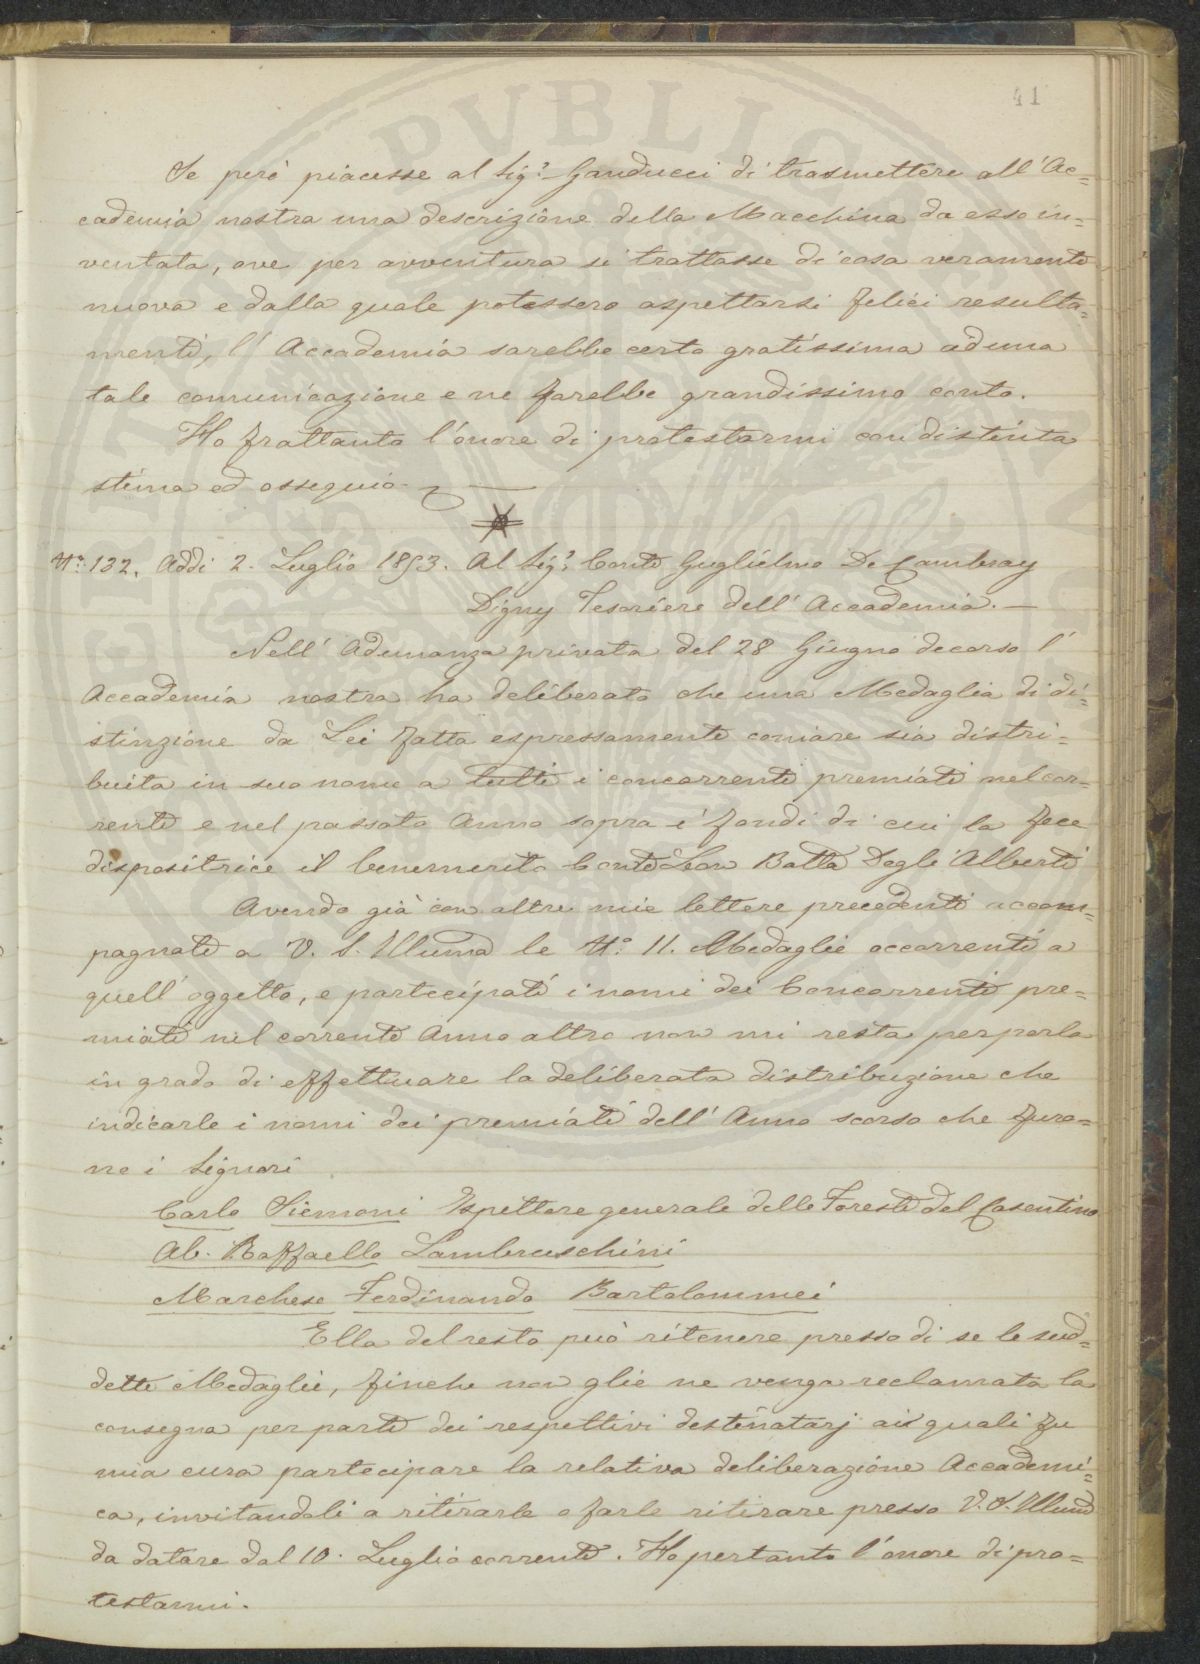 41
Se però piacesse al Sig.r Ganducci di trasmettere all'Ac=
cademia nostra una descrizione della Macchina da esso in=
ventata, ove per avventura si trattasse di cosa veramente
nuova e dalla quale potessero aspettarsi felici resulta=
menti, l'Accademia sarebbe certo gratissima ad una
tale comunicazione e ne farebbe grandissimo conto.
Ho frattanto l'onore di protestarmi con distinta
stima ed ossequio.
N.o 132. Addi 2. Luglio 1853. Al Sig.r Conte Guglielmo De Cambray
Digny Tesoriere dell'Accademia. —
Nell'Adunanza privata del 28 Giugno decorso l'
Accademia nostra ha deliberato che una Medaglia di di=
stinzione da Lei fatta espressamente coniare sia distri=
buita in suo nome a tutti i concorrenti premiati nel cor=
rente e nel passato Anno sopra i fondi di cui la fece
dispositrice il benemerito Conte Leon Batta Degli Alberti
Avendo già con altre mie lettere precedenti accom=
pagnate a V. S. Illuma le N.o 11. Medaglie occorrenti a
quell'oggetto, e partecipati i nomi dei Concorrenti pre=
miati nel corrente Anno altro non mi resta per porla
in grado di effettuare la deliberata distribuzione che
indicarle i nomi dei premiati dell'Anno scorso che furo=
no i Signori
Carlo Siemoni Ispettore generale delle Foreste del Casentino
Ab. Raffaello Lambruschini
Marchese Ferdinando Bartolommei
Ella del resto può ritenere presso di se le sud=
dette Medaglie, finche non glie ne venga reclamata la
consegna per parte dei respettivi destinatarj ai quali fu
mia cura partecipare la relativa deliberazione Accademi=
ca, invitandoli a ritirarle o farle ritirare presso V. S. Illuma
da datare dal 10. Luglio corrente. Ho pertanto l'onore di pro=
testarmi.